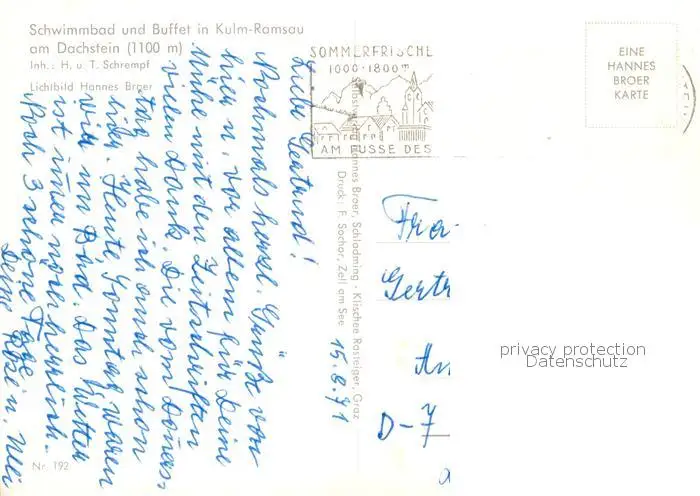 Schwimmbad und Buffet in Kulm-Ramsau
am Dachstein (1100 m)
Inh.: H. u. T. Schrempf
Lichtbild Hannes Broer
SOMMERFRISCHE
1000-1800m
AM FUSSE DES
EINE
HANNES
BROER
KARTE
Hannes Broer, Schladming · Klischee Rasteiger, Graz
Druck: F. Sochor, Zell am See
15.8.71
Liebe Gertrud!
Nochmals herzl. Grüße von
hier u. vor allem für Deine
Mühe mit den Zeitschriften
vielen Dank. Die vom Donners-
tag habe ich auch schon
. Heute Sonntag waren
wir im Bad. Das Wetter
ist immer noch herrlich.
Noch 3 schöne Tage
Deine
Frau
Gertr
An
D-7
privacy protection
Datenschutz
Nr. 192